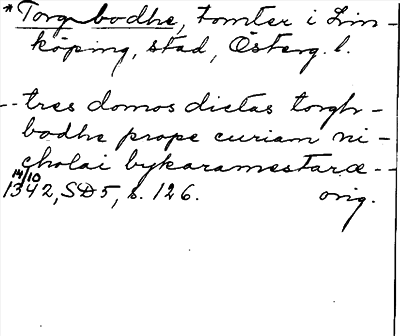 *Torgbodhe, tomter i Lin-
köping, stad, Österg. l.
-- tres domos dictas torgh-
bodhe prope curiam ni-
cholai bykaramestaræ --
14/10
1342, SD5, s. 126. orig.